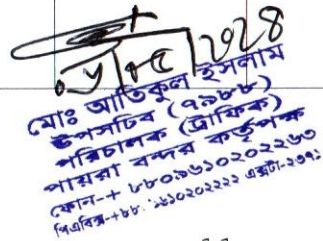 মোঃ আতিকুল ইসলাম
উপসচিব (৭৯৮৮)
পরিচালক (ট্রাফিক)
পায়রা বন্দর কর্তৃপক্ষ
ফোন-+ ৮৮০৯৬১০২০২২৬৩
পিএবিক্স-+৮৮০৯৬১০২০২২২২ এক্সটে-২৩৭১